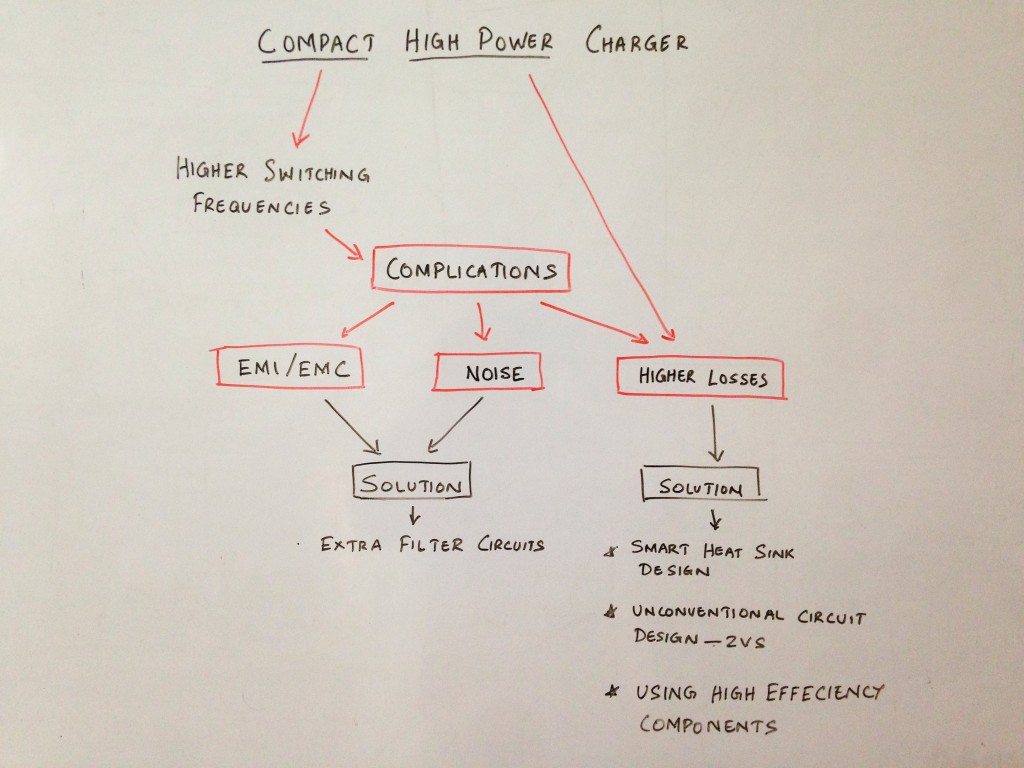 COMPACT HIGH POWER CHARGER
HIGHER SWITCHING
FREQUENCIES
COMPLICATIONS
EMI/EMC
NOISE
HIGHER LOSSES
SOLUTION
SOLUTION
EXTRA FILTER CIRCUITS
* SMART HEAT SINK
DESIGN
* UNCONVENTIONAL CIRCUIT
DESIGN – ZVS
* USING HIGH EFFECIENCY
COMPONENTS